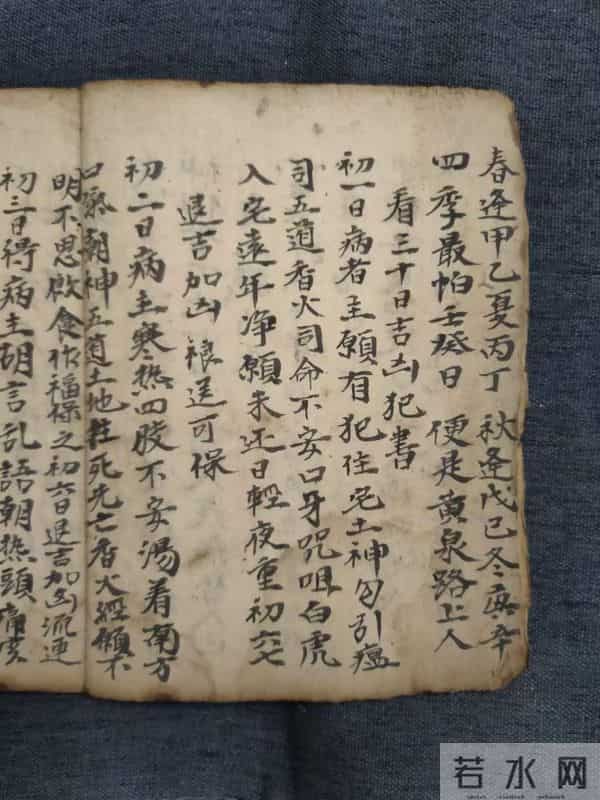 春逢甲乙夏丙丁 秋逢戊己冬庚辛
四季最怕壬癸日 便是黄泉路上人
看三十日吉凶犯書
初一日病者主願有犯住宅土神勾引瘟
司五道香火司命不安口牙咒咀白虎
入宅遠年净願未还日輕夜重初六七
退吉加凶 禳送可保
初二日病主寒热四肢不安湯着南方
朝神五道土地枉死先亡香火經願不
明不思飲食作福保之初六日退吉加凶流連
初三日得病主胡言乱語朝热頭痛
若水网